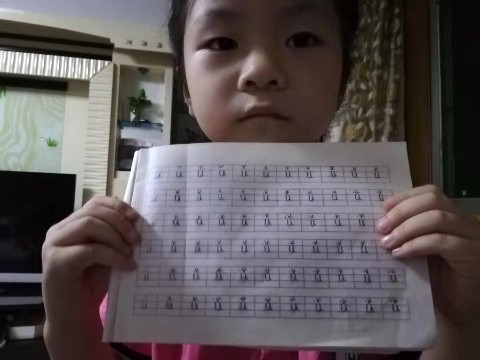 ǚ ǚ ǚ ǚ ǚ ǚ ǚ ǚ ǚ ǚ ǚ
ǚ ǚ ǚ ǚ ǚ ǚ ǚ ǚ ǚ ǚ ǚ
ǚ ǚ ǚ ǚ ǚ ǚ ǚ ǚ ǚ ǚ ǚ
ǚ ǚ ǚ ǚ ǚ ǚ ǚ ǚ ǚ ǚ
ǚ ǚ ǚ ǚ ǚ ǚ ǚ ǚ ǚ ǚ ǚ
ǚ ǚ ǚ ǚ ǚ ǚ ǚ ǚ ǚ ǚ ǚ